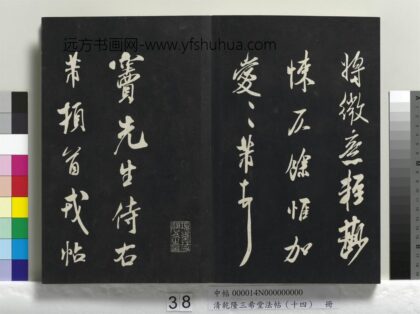 远方书画网-www.yfshuhua.com
将微意轻勘
悚仄余惟加
爱〻芾皇
窦先生侍右
芾顿首戎帖
38
中帖 000014N000000000
清乾隆三希堂法帖(十四) 冊